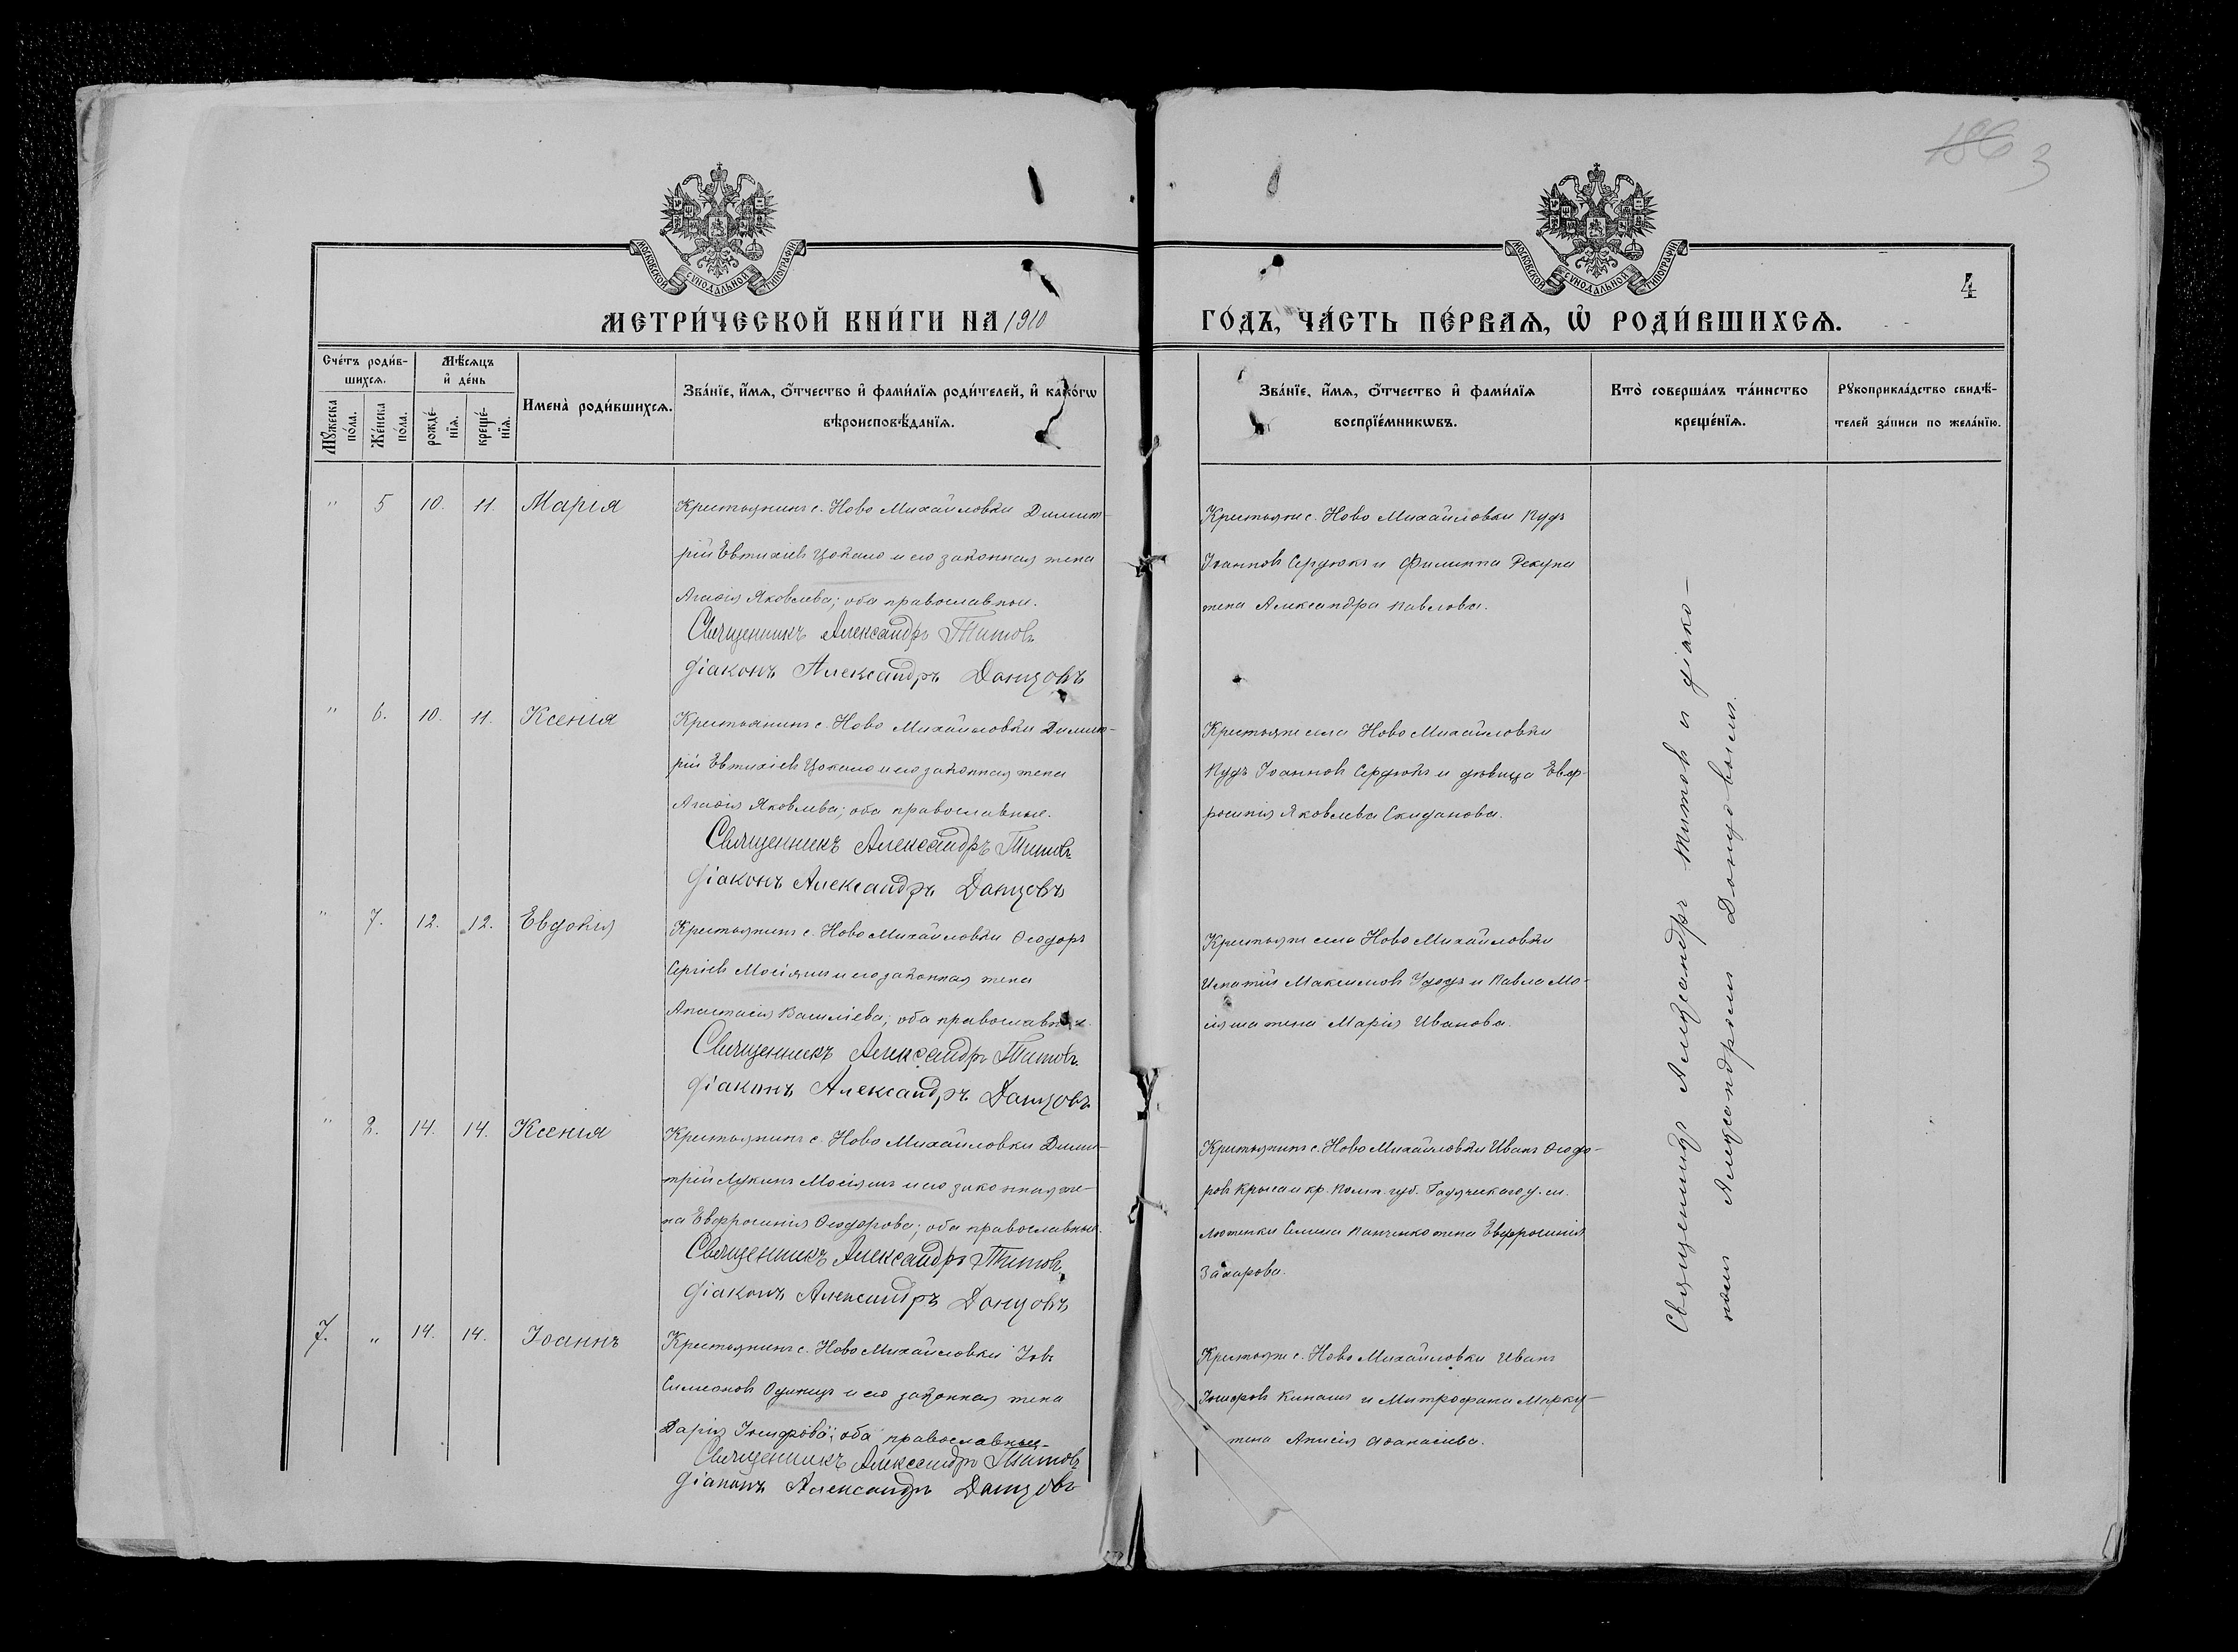 186 3
МОСКОВСКОЙ СѴНОДАЛЬНОЙ ТИПОГРАФІИ
МОСКОВСКОЙ СѴНОДАЛЬНОЙ ТИПОГРАФІИ
4
МЕТРИ́ЧЕСКОЙ КНИ́ГИ НА 1910
ГО́ДЪ, ЧА́СТЬ ПЕ́РВАЯ, Ѡ҆ РОДИ́ВШИХСЯ.
Сче́тъ роди́в-
шихся.
Мꙋ́жеска по́ла.
Же́нска по́ла.
Мѣ́сяцъ
и҆ де́нь
рожде́-
нїя.
креще́-
нїя.
Имена̀ роди́вшихся.
Зва́нїе, и҆́мя, ѻ҆́тчество и҆ фами́лїя роди́телей, и҆ како́гѡ
вѣроисповѣ́данїя.
Зва́нїе, и҆́мя, ѻ҆́тчество и҆ фами́лїя
воспрїе́мникѡвъ.
Кто̀ соверша́лъ та́инство
креще́нїя.
Рꙋкоприкла́дство свидѣ́-
телей за́писи по жела́нїю.
" 5 10. 11. Марія
Крестьянинъ с. Ново Михайловки Димит-
рій Евтихіевъ Цокало и его законная жена
Агафія Яковлева; оба православные.
Священникъ Александръ Титовъ
Діаконъ Александръ Донцовъ
Крестьяне с. Ново Михайловки Пудъ
Іоанновъ Сердюкъ и Филиппа Рекуна
жена Александра Павлова.
" 6. 10. 11. Ксенія
Крестьянинъ с. Ново Михайловки Димит-
рій Евтихіевъ Цокало и его законная жена
Агафія Яковлева; оба православные.
Священникъ Александръ Титовъ
Діаконъ Александръ Донцовъ
Крестьяне села Ново Михайловки
Пудъ Іоанновъ Сердюкъ и дѣвица Евф-
росинія Яковлева Скиданова.
" 7. 12. 12. Евдокія
Крестьянинъ с. Ново Михайловки Ѳеодоръ
Сергіевъ Мосіяшъ и его законная жена
Анастасія Василіева; оба православные.
Священникъ Александръ Титовъ
Діаконъ Александръ Донцовъ
Крестьяне села Ново Михайловки
Игнатій Максимовъ Удодъ и Павла Мо-
сіяша жена Марія Иванова.
" 2. 14. 14. Ксенія
Крестьянинъ с. Ново Михайловки Дими-
трій Лукинъ Мосіяшъ и его законная же-
на Евфросинія Ѳеодорова; оба православные.
Священникъ Александръ Титовъ
Діаконъ Александръ Донцовъ
Крестьянинъ с. Ново Михайловки Иванъ Ѳеодо-
ровъ Крыса и кр. Полт. губ. Гадячскаго у. м.
Лютенки Панченко жена Евфросинія
Захарова.
7. " 14. 14. Іоаннъ
Крестьянинъ с. Ново Михайловки Іовъ
Симеоновъ Одинецъ и его законная жена
Дарія Іосифова; оба православные.
Священникъ Александръ Титовъ
Діаконъ Александръ Донцовъ
Крестьяне с. Ново Михайловки Иванъ
Іосифовъ Кинашъ и Митрофана
жена Анисія Аѳанасіева.
Священникъ Александръ Титовъ и діако-
номъ Александромъ Донцовымъ.